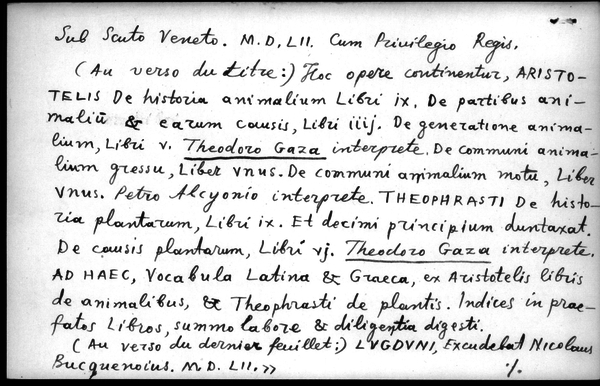 Sub Scuto Veneto. M.D.LII. Cum Privilegio Regis.
(Au verso du titre:) Hoc opere continentur, ARISTO-
TELIS De historia animalium Libri ix. De partibus ani-
maliū & earum causis, Libri iiij. De generatione anima-
lium, Libri v. Theodoro Gaza interprete. De communi anima-
lium gressu, Liber vnus. De communi animalium motu, Liber
vnus. Petro Alcyonio interprete. THEOPHRASTI De histo-
ria plantarum, Libri ix. Et decimi principium duntaxat.
De causis plantarum, Libri vj. Theodoro Gaza interprete.
AD HAEC, Vocabula Latina & Graeca, ex Aristotelis libris
de animalibus, & Theophrasti de plantis. Indices in prae-
fatos Libros, summo labore & diligentia digesti.
(Au verso du dernier feuillet:) LVGDVNI, Excudebat Nicolaus
Bucquenoius. M.D.LII.»
·/.